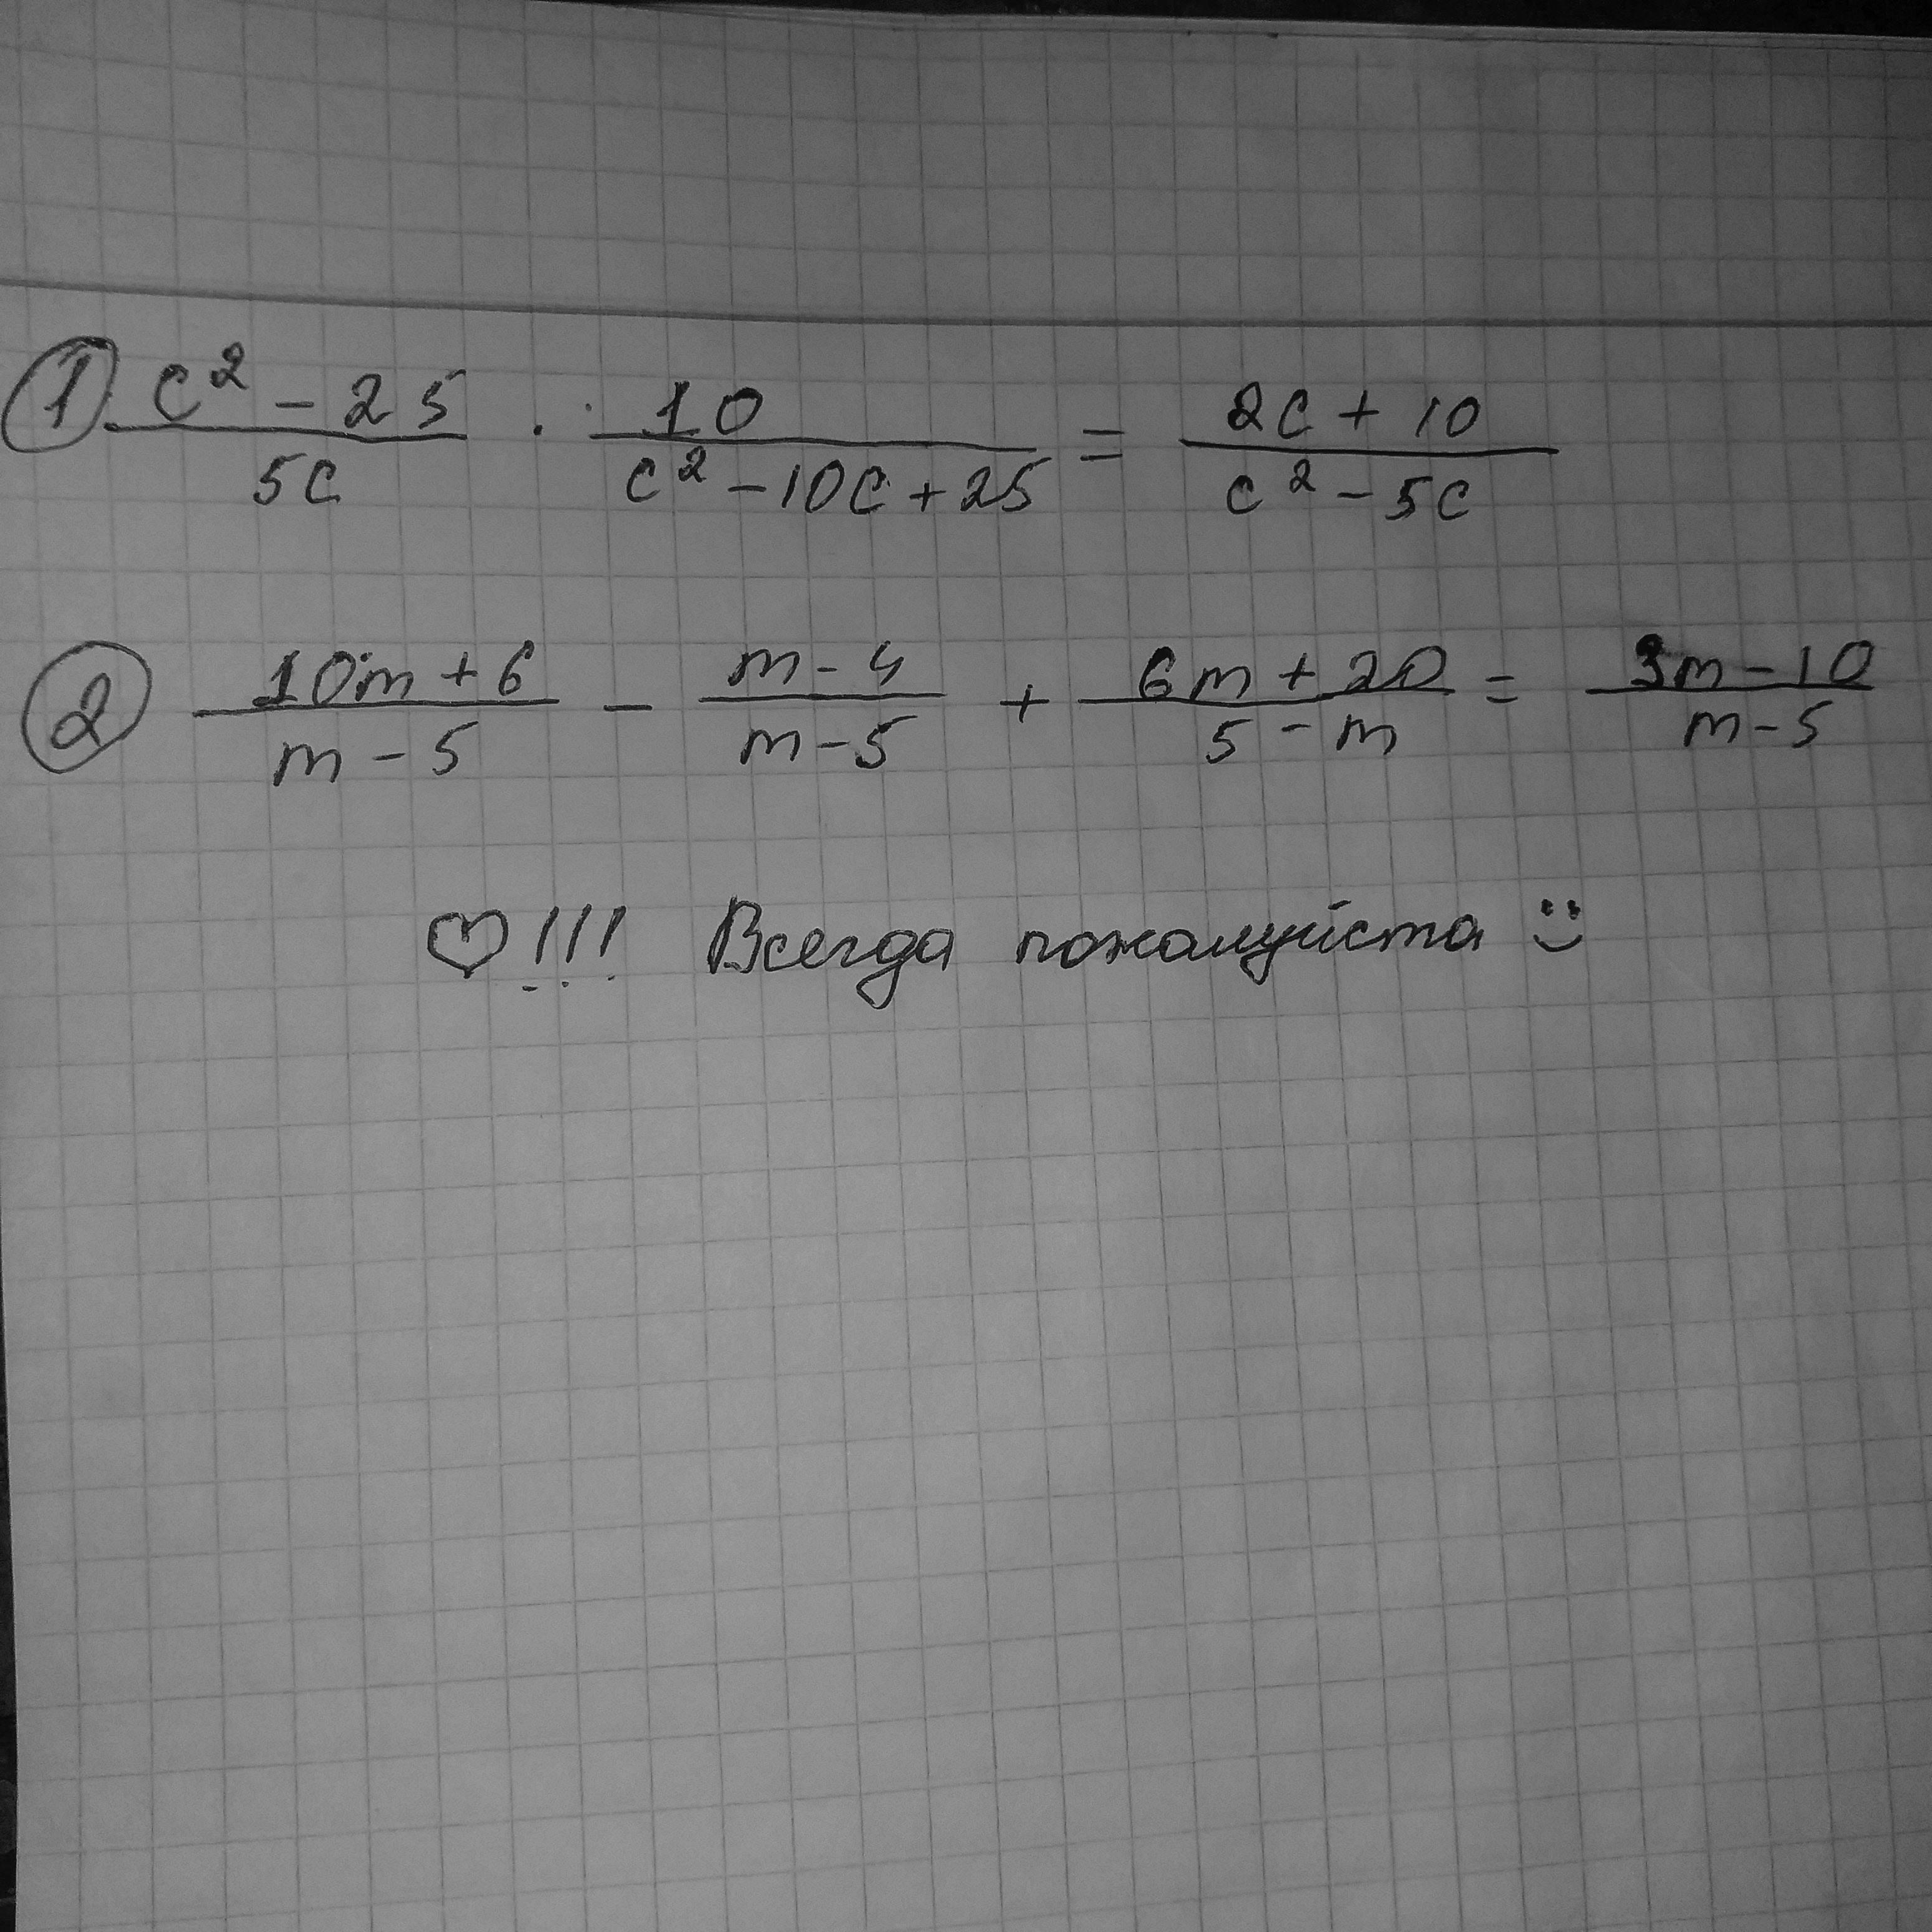 ① (c² - 25)/(5c) · 10/(c² - 10c + 25) = (2c + 10)/(c² - 5c)
② (10m + 6)/(m - 5) - (m - 4)/(m - 5) + (6m + 20)/(5 - m) = (3m - 10)/(m - 5)
♡!!! Всегда пожалуйста :)